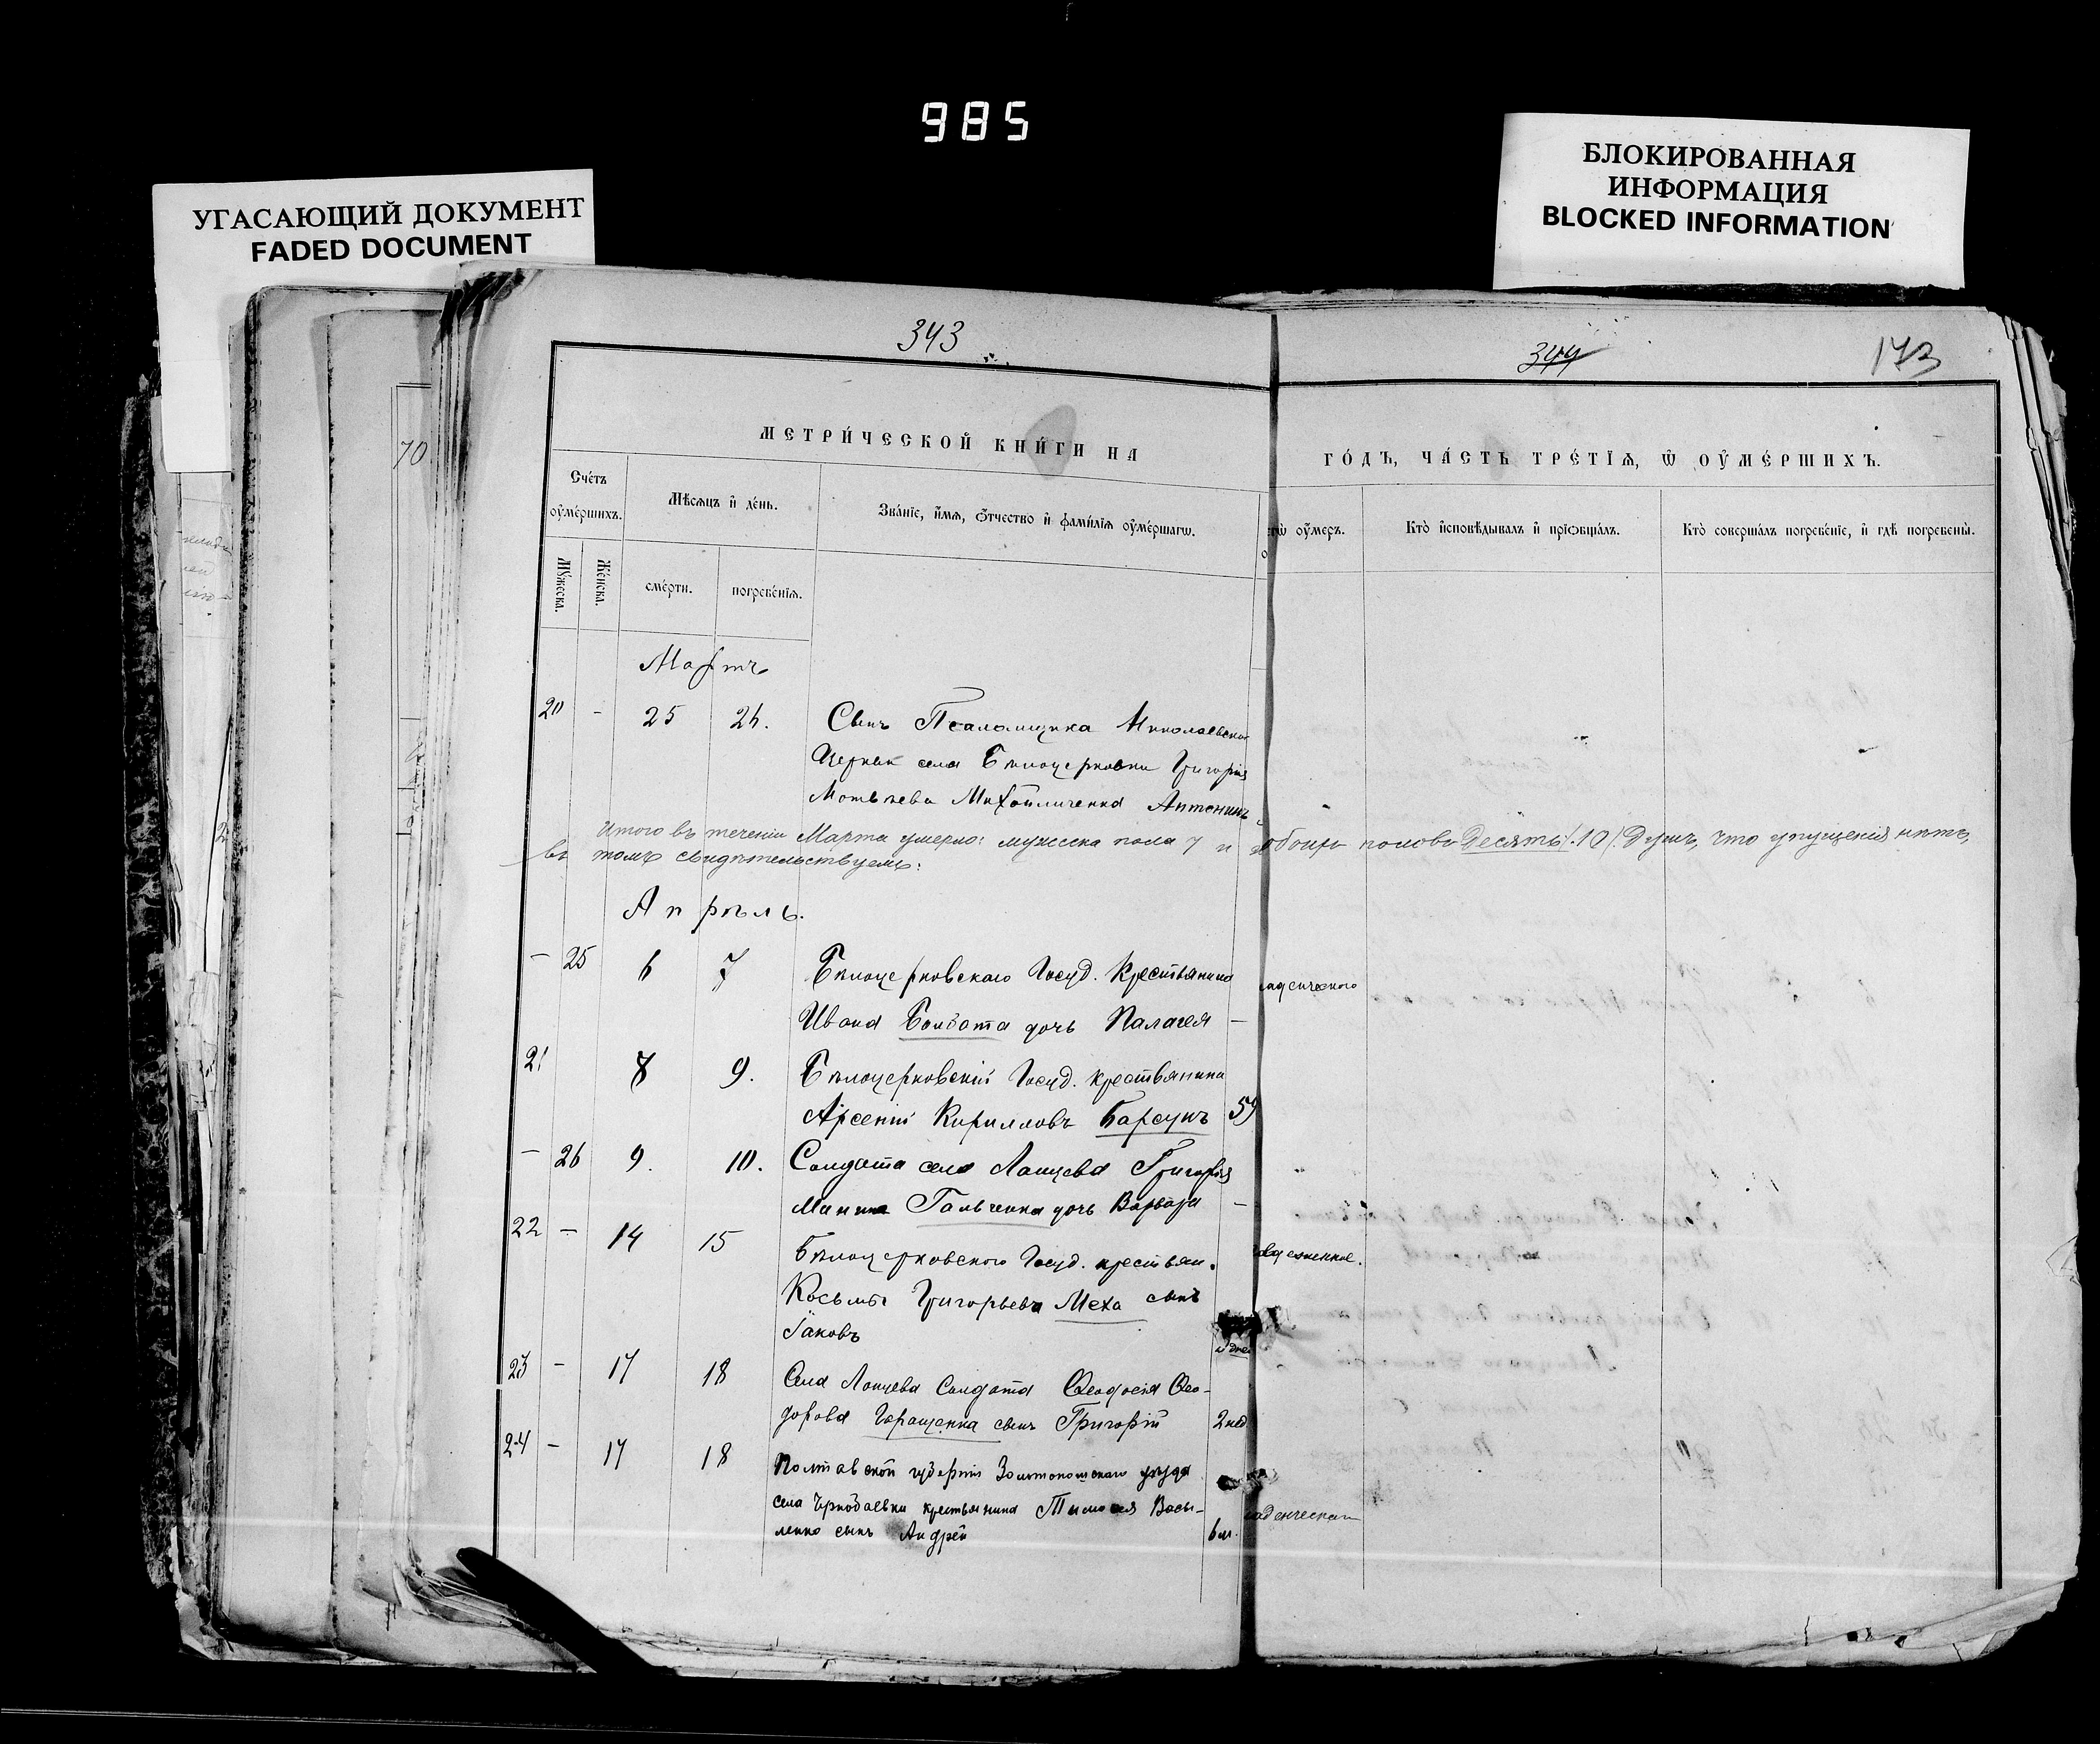 985
УГАСАЮЩИЙ ДОКУМЕНТ
FADED DOCUMENT
БЛОКИРОВАННАЯ
ИНФОРМАЦИЯ
BLOCKED INFORMATION
70
343
344
173
МЕТРИ́ЧЕСКОЙ КНИ́ГИ НА
ГО́ДЪ, ЧА́СТЬ ТРЕ́ТЇѦ, Ѡ҆ ОУ҆МЕ́РШИХЪ.
Сче́тъ
оу҆ме́ршихъ.
Мѣ́сяцъ и҆ де́нь.
Зва́нїе, и҆́мя, ѻ҆́тчество и҆ фами́лїя оу҆ме́ршагѡ.
оу҆́меръ.
Кто̀ и҆сповѣ́дывалъ и҆ прїѡбща́лъ.
Кто̀ соверша́лъ погребе́нїе, и҆ гдѣ̀ погребены̀.
Му́жеска.
Же́нска.
сме́рти.
погребе́нїя.
Мартъ
20 - 25 26. Сынъ Псаломщика Николаевской
Церкви села Бѣлоцерковки Григорія
Матвѣева Михайличенка Антонинъ
Итого въ течении Марта умерло: мужеска пола 7 и обоихъ половъ Десять /.10/. Душъ, что упущенія нѣтъ,
въ томъ свидѣтельствуемъ:
Апрѣль.
- 25 6 7 Бѣлоцерковскаго Госуд. Крестьянина
Ивана дочь Палагея -
21 8 9. Бѣлоцерковскій Госуд. крестьянинъ
Арсеній Кирилловъ Барсукъ 59
- 26 9. 10. Солдата села Лапцева Григорія
дочь Варвара -
22 - 14 15 Бѣлоцерковскаго Госуд. крестьян.
Косьмы Григорьева Меха сынъ
Іаковъ
23 - 17 18 Села Лапцева Солдата Ѳеодосія Ѳео-
дорова Геращенка сынъ Григорій 2 нед
24 - 17 18 Полтавской губерніи Золотоношскаго уѣзда
села Чернобаевки крестьянина Тимоѳея Васи-
ленко сынъ Андрей 6 м.